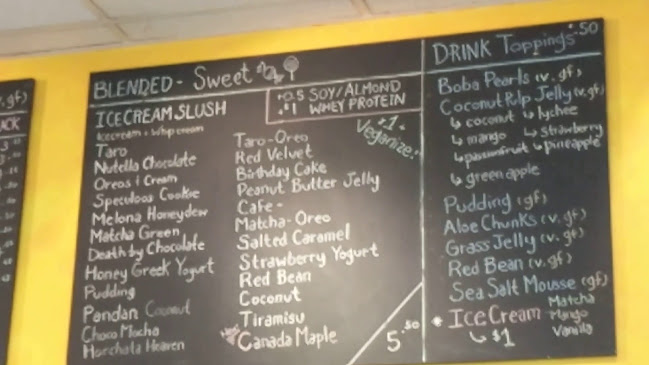 .gf)
ACK
BLENDED - Sweet
+0.5 SOY/ALMOND
+$1 WHEY PROTEIN
ICECREAM SLUSH
Icecream + Whip cream
+1
Veganize!
Taro
Nutella Chocolate
Oreos & Cream
Speculoos Cookie
Melona Honeydew
Matcha Green
Death by Chocolate
Honey Greek Yogurt
Pudding
Pandan Coconut
Choco Mocha
Horchata Heaven
Taro-Oreo
Red Velvet
Birthday Cake
Peanut Butter Jelly
Cafe -
Matcha-Oreo
Salted Caramel
Strawberry Yogurt
Red Bean
Coconut
Tiramisu
Canada Maple
5.50
DRINK Toppings .50
Boba Pearls (v.gf)
Coconut Pulp Jelly (v.gf)
↳ coconut ↳ lychee
↳ mango ↳ strawberry
↳ passionfruit ↳ pineapple
↳ green apple
Pudding (gf)
Aloe Chunks (v.gf)
Grass Jelly (v.gf)
Red Bean (v.gf)
Sea Salt Mousse (gf)
Ice Cream
↳ $1
Matcha
Mango
Vanilla